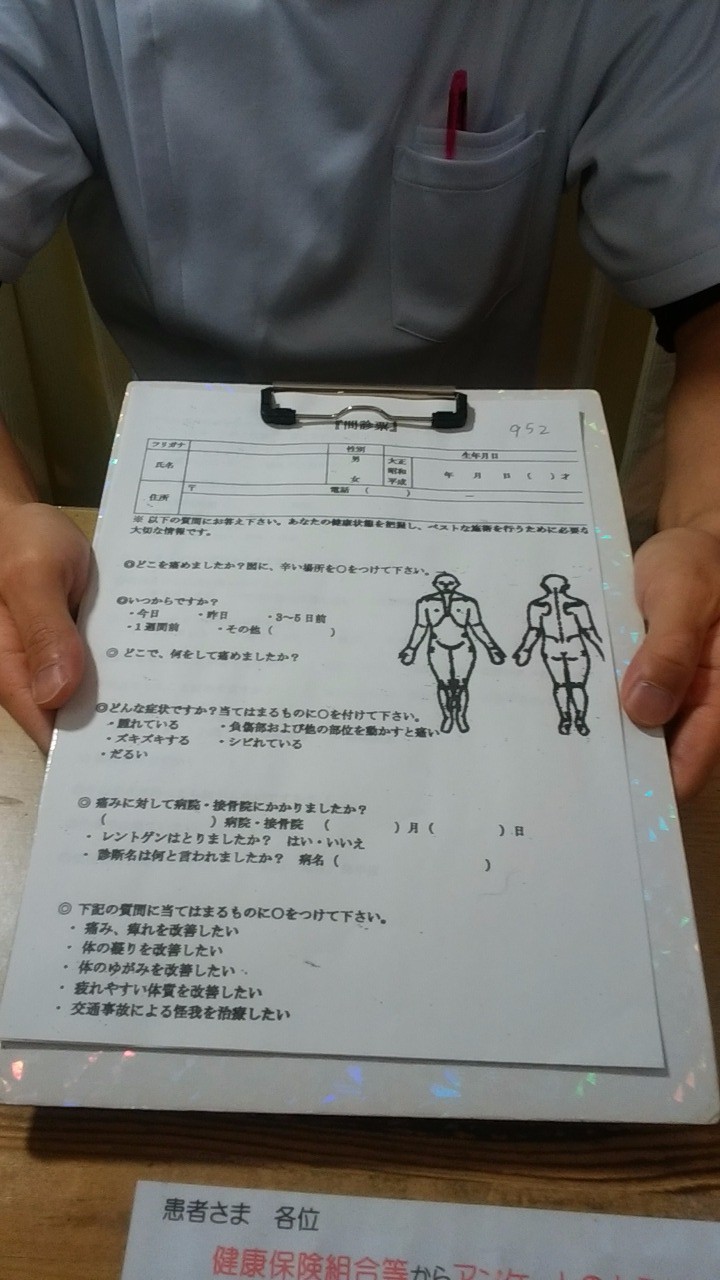 『問診票』
952
フリガナ 性別 生年月日
氏名 男 女 大正 昭和 平成 年 月 日 ( )才
住所 〒 電話 ( ) ―
※ 以下の質問にお答え下さい。あなたの健康状態を把握し、ベストな施術を行うために必要な
大切な情報です。
◎どこを痛めましたか?図に、辛い場所を〇をつけて下さい。
◎いつからですか?
・今日 ・昨日 ・3~5日前
・1週間前 ・その他 ( )
◎ どこで、何をして痛めましたか?
◎どんな症状ですか?当てはまるものに〇を付けて下さい。
・腫れている ・負傷部および他の部位を動かすと痛い
・ズキズキする ・シビれている
・だるい
◎ 痛みに対して病院・接骨院にかかりましたか?
( ) 病院・接骨院 ( ) 月 ( ) 日
・ レントゲンはとりましたか? はい・いいえ
・ 診断名は何と言われましたか? 病名 ( )
◎ 下記の質問に当てはまるものに〇をつけて下さい。
・ 痛み、痺れを改善したい
・ 体の凝りを改善したい
・ 体のゆがみを改善したい
・ 疲れやすい体質を改善したい
・ 交通事故による怪我を治療したい
患者さま 各位
健康保険組合等からアンケートの